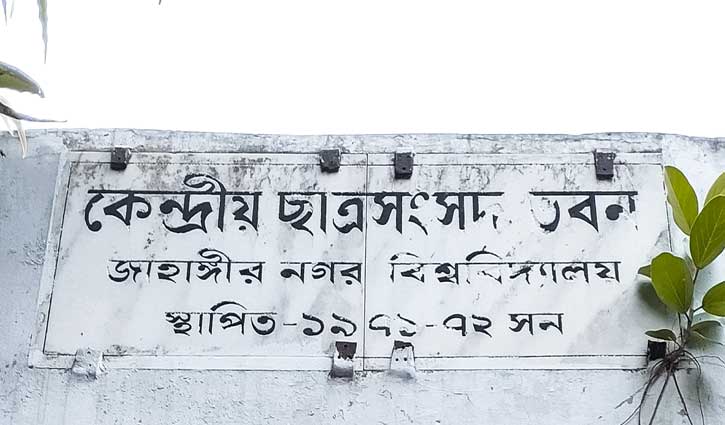 কেন্দ্রীয় ছাত্র সংসদ ভবন
জাহাঙ্গীর নগর বিশ্ববিদ্যালয়
স্থাপিত-১৯৭১-৭২ সন